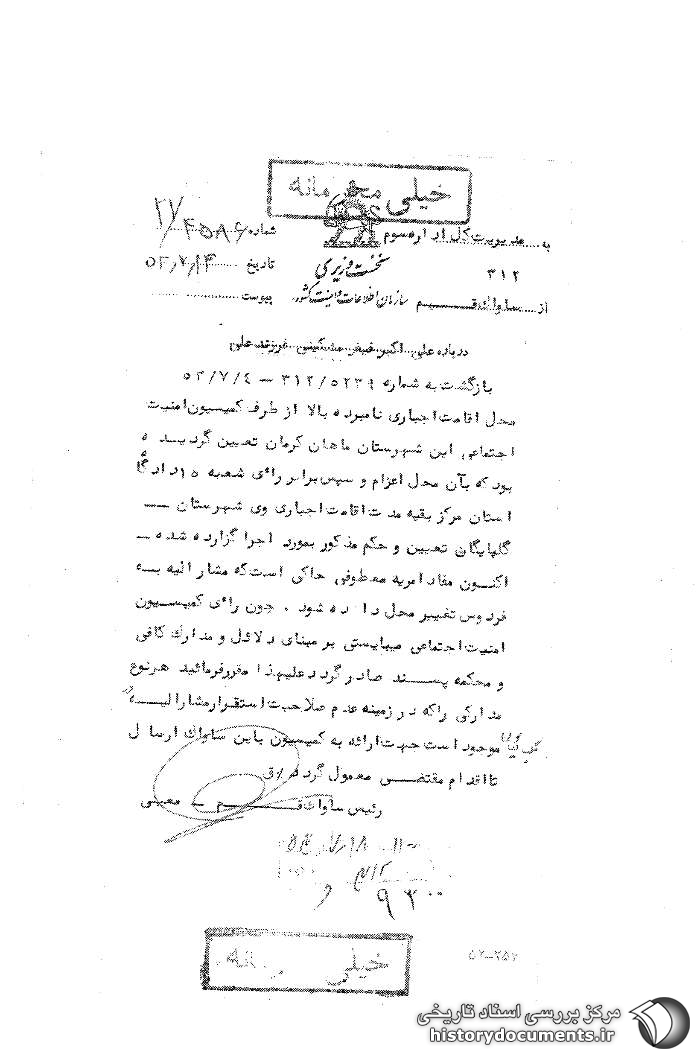 خیلی محرمانه
به مدیریت کل اداره سوم
۳۱۲
از ساواک قم
نخست وزیری
سازمان اطلاعات و امنیت کشور
شماره ۲۷/۴۵۸۶
تاریخ ۵۳/۷/۱۴
پیوست
درباره علی اکبر فیض مشکینی فرزند علی
بازگشت به شماره ۳۱۲/۵۲۳۹ – ۵۳/۷/۴
محل اقامت اجباری نامبرده بالا از طرف کمیسیون امنیت
اجتماعی این شهرستان ماهان کرمان تعیین گردیده
بود که بآن محل اعزام و سپس برابر رای شعبه ۱۵ دادگاه
استان مرکز بقیه مدت اقامت اجباری وی شهرستان —
گلپایگان تعیین و حکم مذکور بمورد اجرا گزارده شده –
اکنون مفاد امریه معطوفی حاکی است که مشارالیه به
فردوس تغییر محل داده شود . چون رای کمیسیون
امنیت اجتماعی میبایستی بر مبنای دلائل و مدارک کافی
و محکمه پسند صادر گردد علیهذا مقرر فرمائید هرنوع
مدارکی را که در زمینه عدم صلاحیت استقرار مشارالیه در
گلپایگان موجود است جهت ارائه به کمیسیون باین ساواک ارسال
تا اقدام مقتضی معمول گردد /ق
رئیس ساواک قم – معینی
۹۳۰۰
خیلی
۵۲–۲۵۲
مرکز بررسی اسناد تاریخی
historydocuments.ir